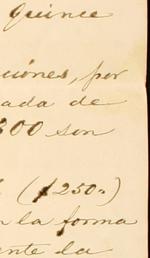 Quince
ciónes, por
ada de
300 son
($250.)
la forma
ente la